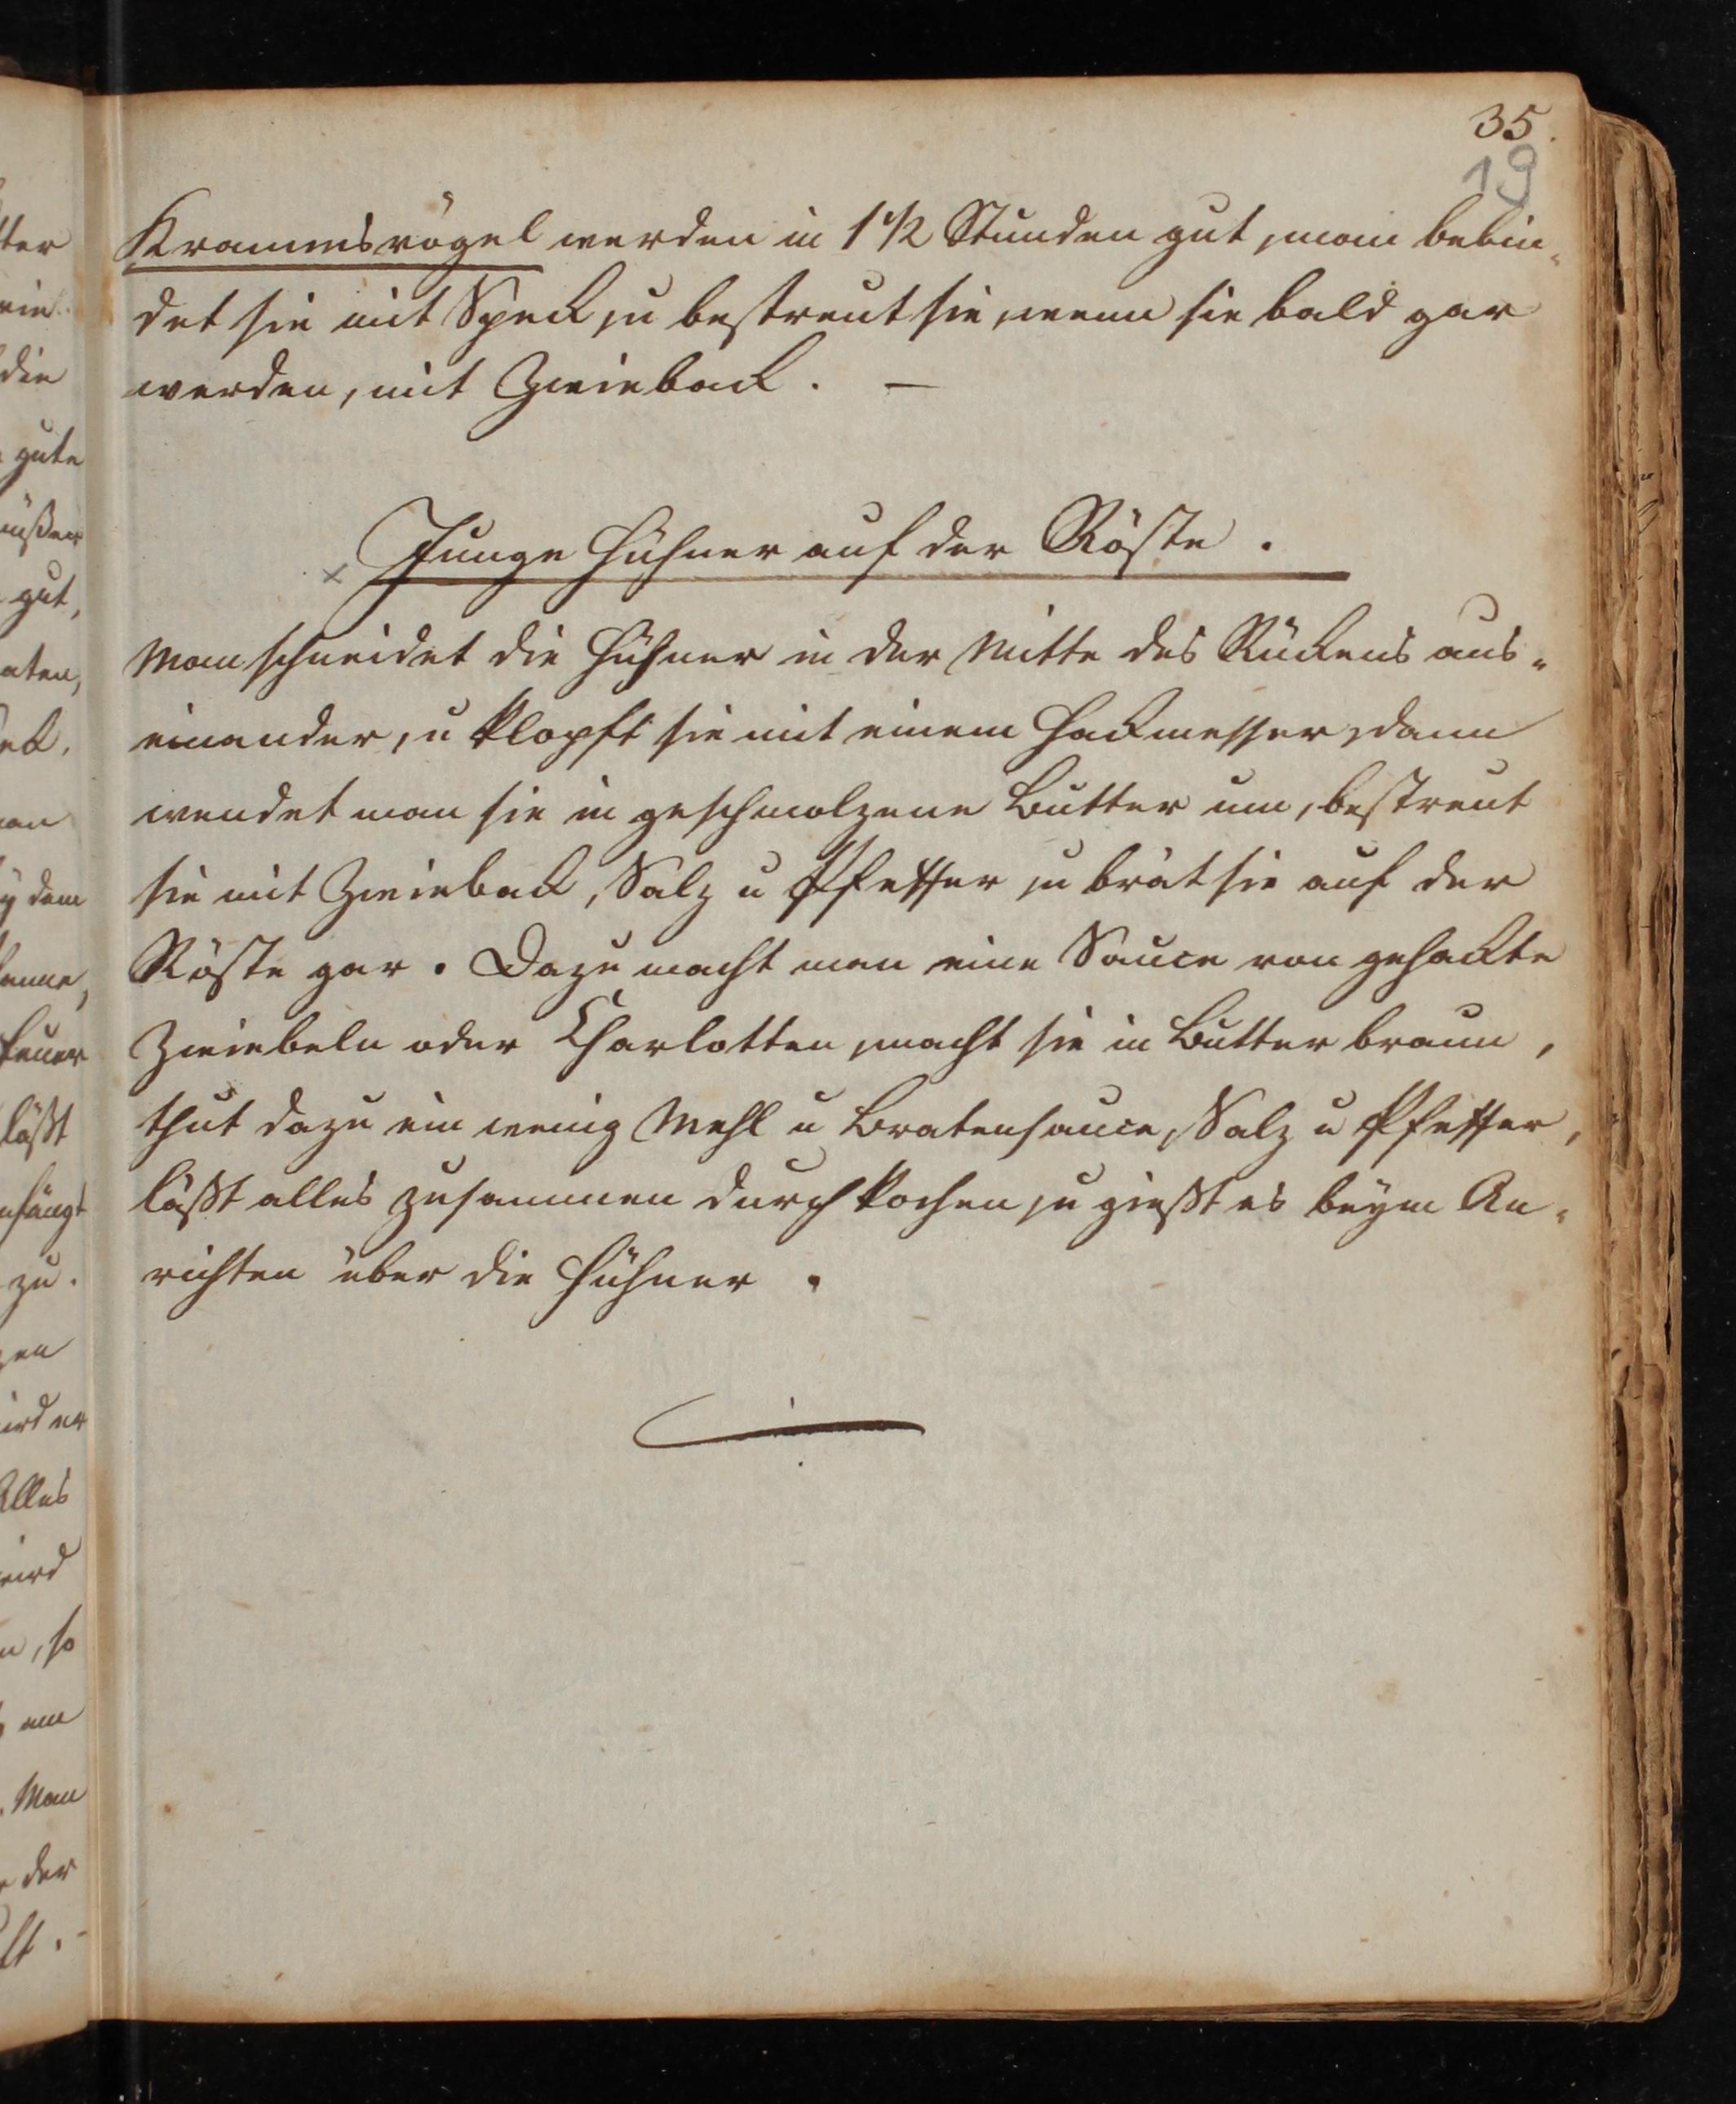 35.
19
Krammsvögel werden in 1 1/2 Stunden gut, man bebin-
det sie mit Speck, u bestreut sie, wenn sie bald gar
werden, mit Zwieback. —
× Junge Hühner auf der Röste.
Man schneidet die Hühner in der Mitte des Rückens aus-
einander, u klopft sie mit einem Hackmesser, dann
wendet man sie in geschmolzene Butter um, bestreut
sie mit Zwieback, Salz u Pfeffer, u brät sie auf der
Röste gar. Dazu macht man eine Sauce von gehackte
Zwiebeln oder Charlotten, macht sie in Butter braun,
thut dazu ein wenig Mehl u Bratensauce, Salz u Pfeffer,
läßt alles zusammen durch kochen, u gießt es beym An-
richten über die Hühner.
gute
die
gut,
dem
läßt
zu.
Alles
wird
so
Man
der